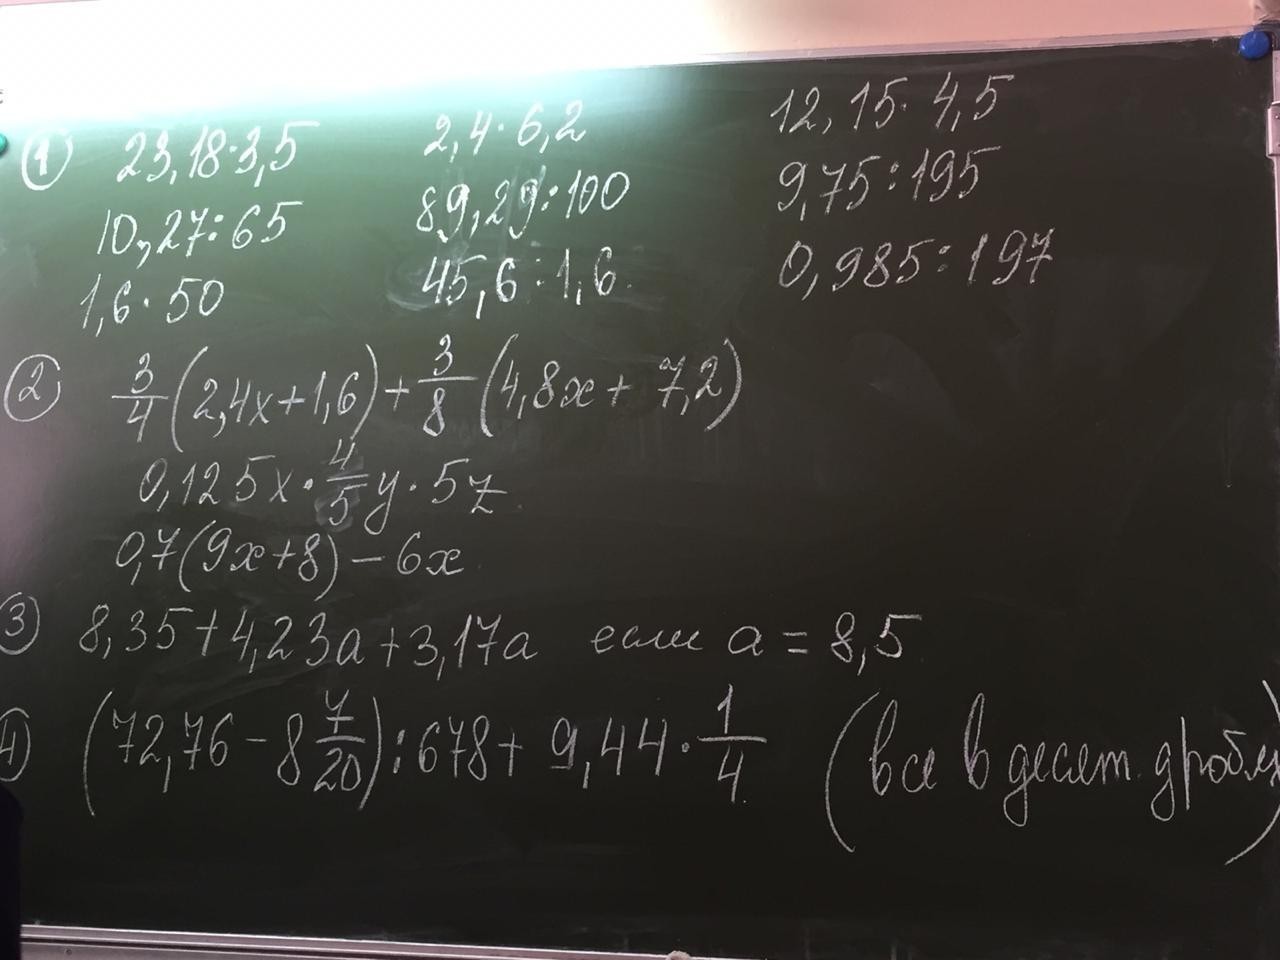 ① 23,18·3,5 2,4·6,2 12,15·4,5
10,27:65 89,29:100 9,75:195
1,6·50 45,6:1,6 0,985:197
② 3/4 (2,4x+1,6)+ 3/8 (4,8x+7,2)
0,125x· 4/5 y·5z
0,7(9x+8)-6x
③ 8,35+4,23a+3,17a если a=8,5
4) (72,76-8 7/20):678+9,44· 1/4 (все в десят. дробях)